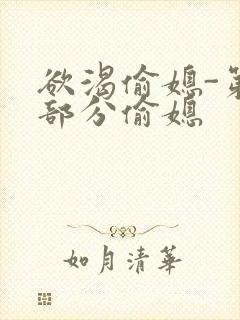 欲渴偷媳-第
部分偷媳
如月清華